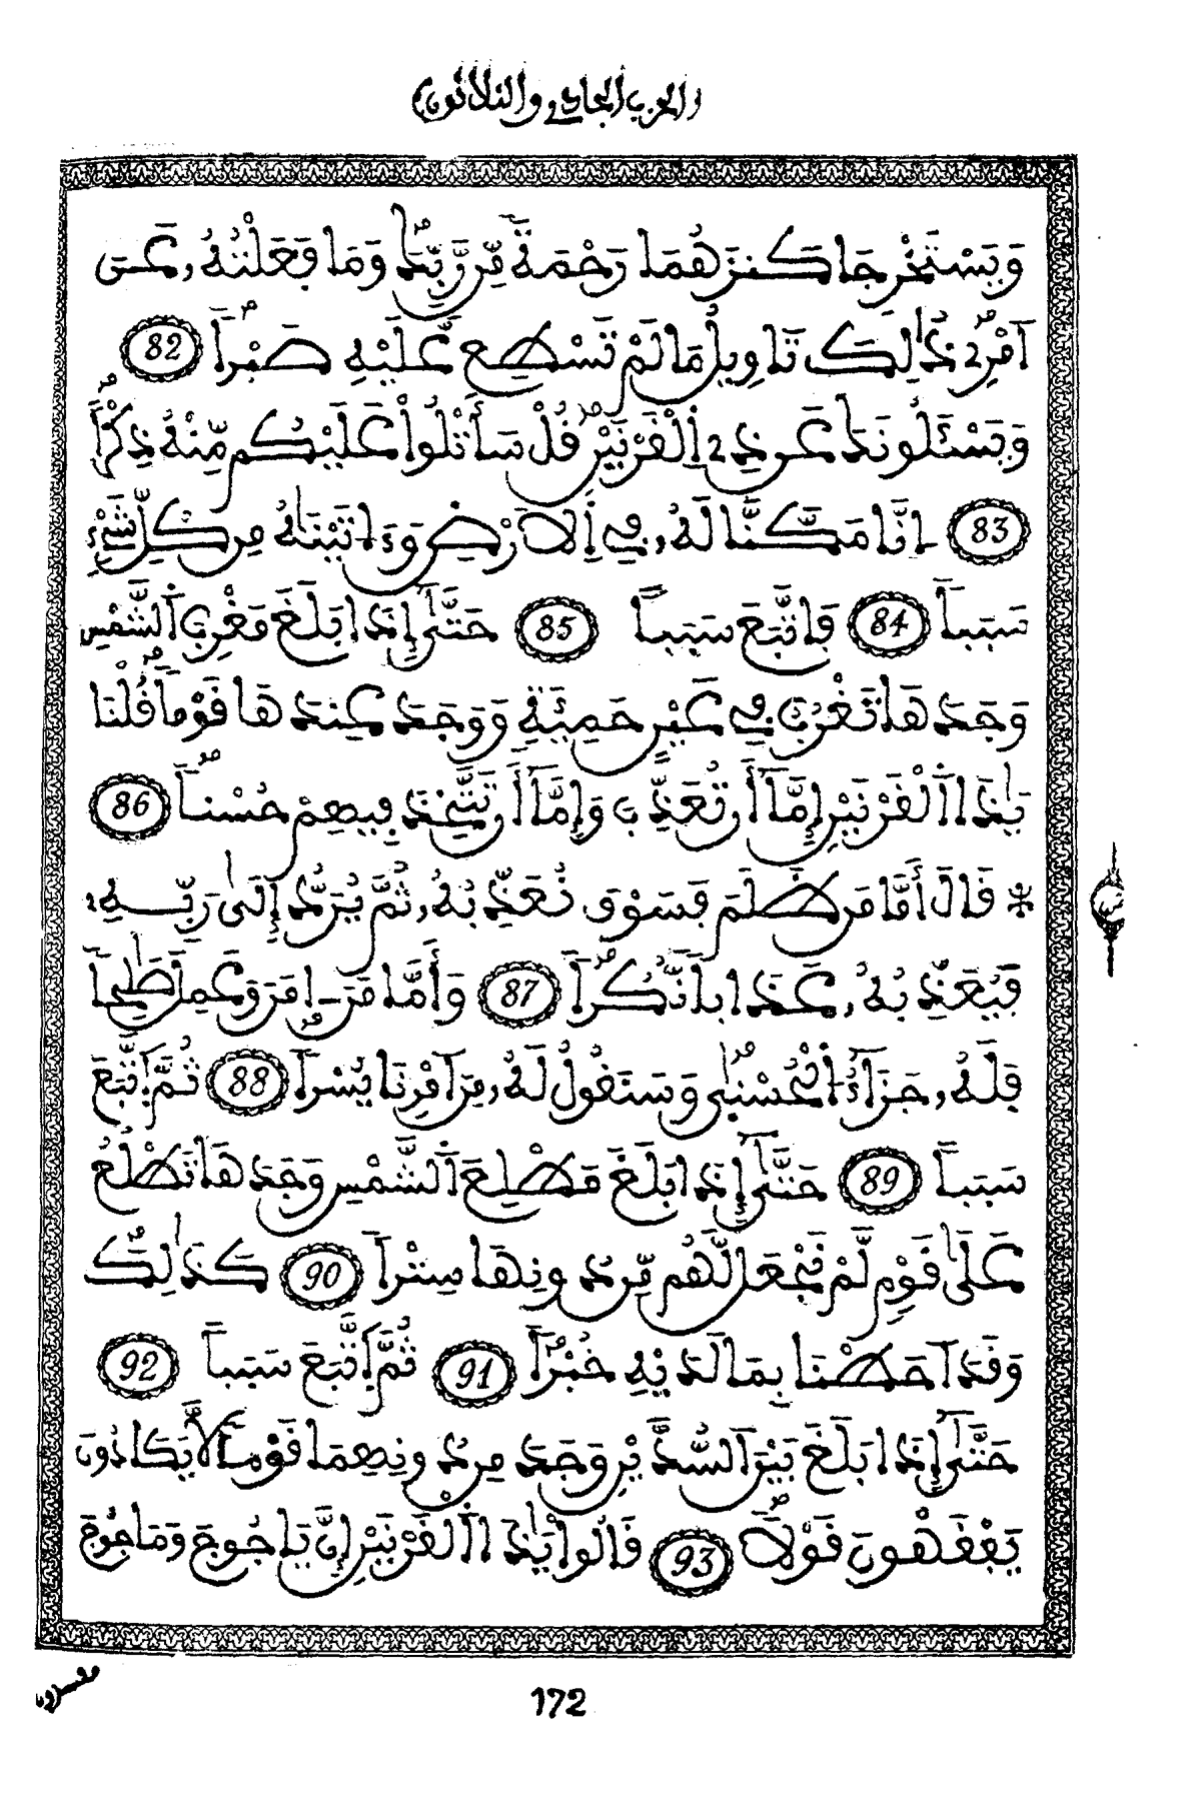 (الحزب الحادي والثلاثون)
وَيَسْتَخْرِجَا كَنزَهُمَا رَحْمَةً مِّن رَّبِّكَ وَمَا فَعَلْتُهُۥ عَنَ
اَمْرِے ذَٰلِكَ تَاوِيلُ مَا لَمْ تَسْطِع عَّلَيْهِ صَبْراً 82
وَيَسْـَٔلُونَكَ عَن ذِے اِ۬لْقَرْنَيْنِ قُلْ سَأَتْلُواْ عَلَيْكُم مِّنْهُ ذِكْراً
83 اِنَّا مَكَّنَّا لَهُۥ فِے اِ۬لَارْضِ وَءَاتَيْنَٰهُ مِن كُلِّ شَےْءٖ
سَبَباً 84 فَاتَّبَعَ سَبَباً 85 حَتَّىٰٓ إِذَا بَلَغَ مَغْرِبَ اَ۬لشَّمْسِ
وَجَدَهَا تَغْرُبُ فِے عَيْنٍ حَمِئَةٖ وَوَجَدَ عِندَهَا قَوْماً قُلْنَا
يَٰذَا اَ۬لْقَرْنَيْنِ إِمَّآ أَن تُعَذِّبَ وَإِمَّآ أَن تَتَّخِذَ فِيهِمْ حُسْناً 86
۞ قَالَ أَمَّا مَن ظَلَمَ فَسَوْفَ نُعَذِّبُهُۥ ثُمَّ يُرَدُّ إِلَىٰ رَبِّهِۦ
فَيُعَذِّبُهُۥ عَذَاباً نُّكُراً 87 وَأَمَّا مَنَ اٰمَنَ وَعَمِلَ صَٰلِحاً
فَلَهُۥ جَزَآءُ اُ۬لْحُسْنَىٰ وَسَنَقُولُ لَهُۥ مِنَ اَمْرِنَا يُسْراً 88 ثُمَّ اَ۪تَّبَعَ
سَبَباً 89 حَتَّىٰٓ إِذَا بَلَغَ مَطْلِعَ اَ۬لشَّمْسِ وَجَدَهَا تَطْلُعُ
عَلَىٰ قَوْمٍ لَّمْ نَجْعَل لَّهُم مِّن دُونِهَا سِتْراً 90 كَذَٰلِكَ
وَقَدَ اَحَطْنَا بِمَا لَدَيْهِ خُبْراً 91 ثُمَّ اَ۪تَّبَعَ سَبَباً 92
حَتَّىٰٓ إِذَا بَلَغَ بَيْنَ اَ۬لسُّدَّيْنِ وَجَدَ مِن دُونِهِمَا قَوْماً لَّا يَكَادُونَ
يَفْقَهُونَ قَوْلاً 93 قَالُواْ يَٰذَا اَ۬لْقَرْنَيْنِ إِنَّ يَاجُوجَ وَمَاجُوجَ
مفسدون
172